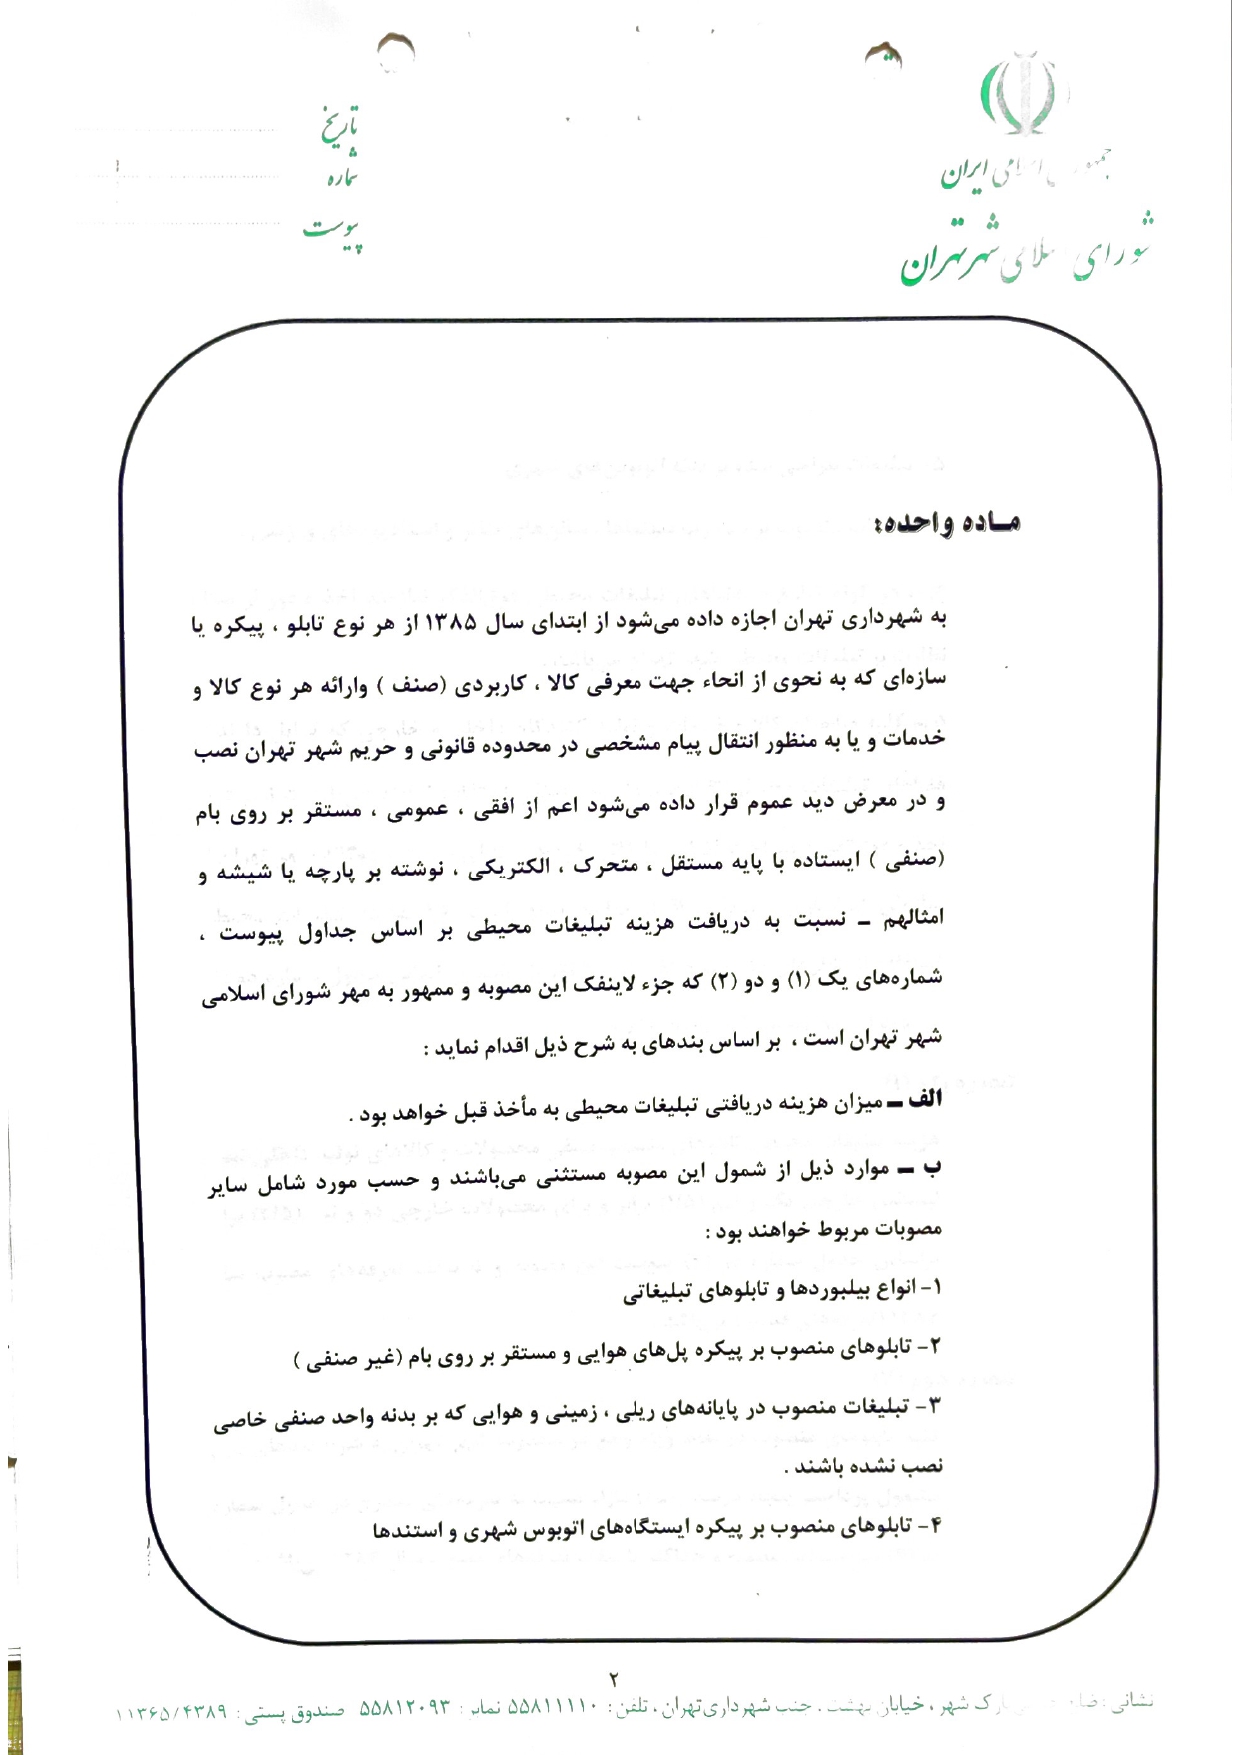 جمهوری اسلامی ایران
شورای اسلامی شهر تهران
تاریخ
شماره
پیوست
ماده واحده:
به شهرداری تهران اجازه داده می‌شود از ابتدای سال ۱۳۸۵ از هر نوع تابلو ، پیکره یا
سازه‌ای که به نحوی از انحاء جهت معرفی کالا ، کاربردی (صنف ) وارائه هر نوع کالا و
خدمات و یا به منظور انتقال پیام مشخصی در محدوده قانونی و حریم شهر تهران نصب
و در معرض دید عموم قرار داده می‌شود اعم از افقی ، عمومی ، مستقر بر روی بام
(صنفی ) ایستاده با پایه مستقل ، متحرک ، الکتریکی ، نوشته بر پارچه یا شیشه و
امثالهم ـ نسبت به دریافت هزینه تبلیغات محیطی بر اساس جداول پیوست ،
شماره‌های یک (۱) و دو (۲) که جزء لاینفک این مصوبه و ممهور به مهر شورای اسلامی
شهر تهران است ، بر اساس بندهای به شرح ذیل اقدام نماید :
الف ـ میزان هزینه دریافتی تبلیغات محیطی به مأخذ قبل خواهد بود .
ب ـ موارد ذیل از شمول این مصوبه مستثنی می‌باشند و حسب مورد شامل سایر
مصوبات مربوط خواهند بود :
۱- انواع بیلبوردها و تابلوهای تبلیغاتی
۲- تابلوهای منصوب بر پیکره پل‌های هوایی و مستقر بر روی بام (غیر صنفی )
۳- تبلیغات منصوب در پایانه‌های ریلی ، زمینی و هوایی که بر بدنه واحد صنفی خاصی
نصب نشده باشند .
۴- تابلوهای منصوب بر پیکره ایستگاه‌های اتوبوس شهری و استندها
۲
نشانی : پارک شهر ، خیابان بهشت . جنب شهرداری تهران ، تلفن : ۵۵۸۱۱۱۱۰ نمابر : ۵۵۸۱۲۰۹۳ صندوق پستی : ۱۱۳۶۵/۴۳۸۹